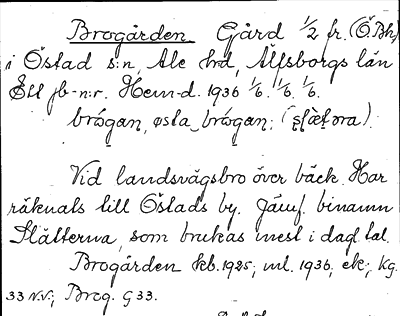 Brogården Gård 1/2 fr. (ÖBh)
i Östad s:n, Ale hd, Älfsborgs län
Ell jb-n:r. Hem-d. 1936 1/6. 1/6, 1/6.
brógan, østa brógan; (slæ̀təra).
Vid landsvägsbro över bäck. Har
räknats till Östads by. Jämf. binamn
Slätterna, som brukas mest i dagl. tal.
Brogården kb. 1925; ml. 1936, ek; Kg.
33 N.V.; Brog. G 33.